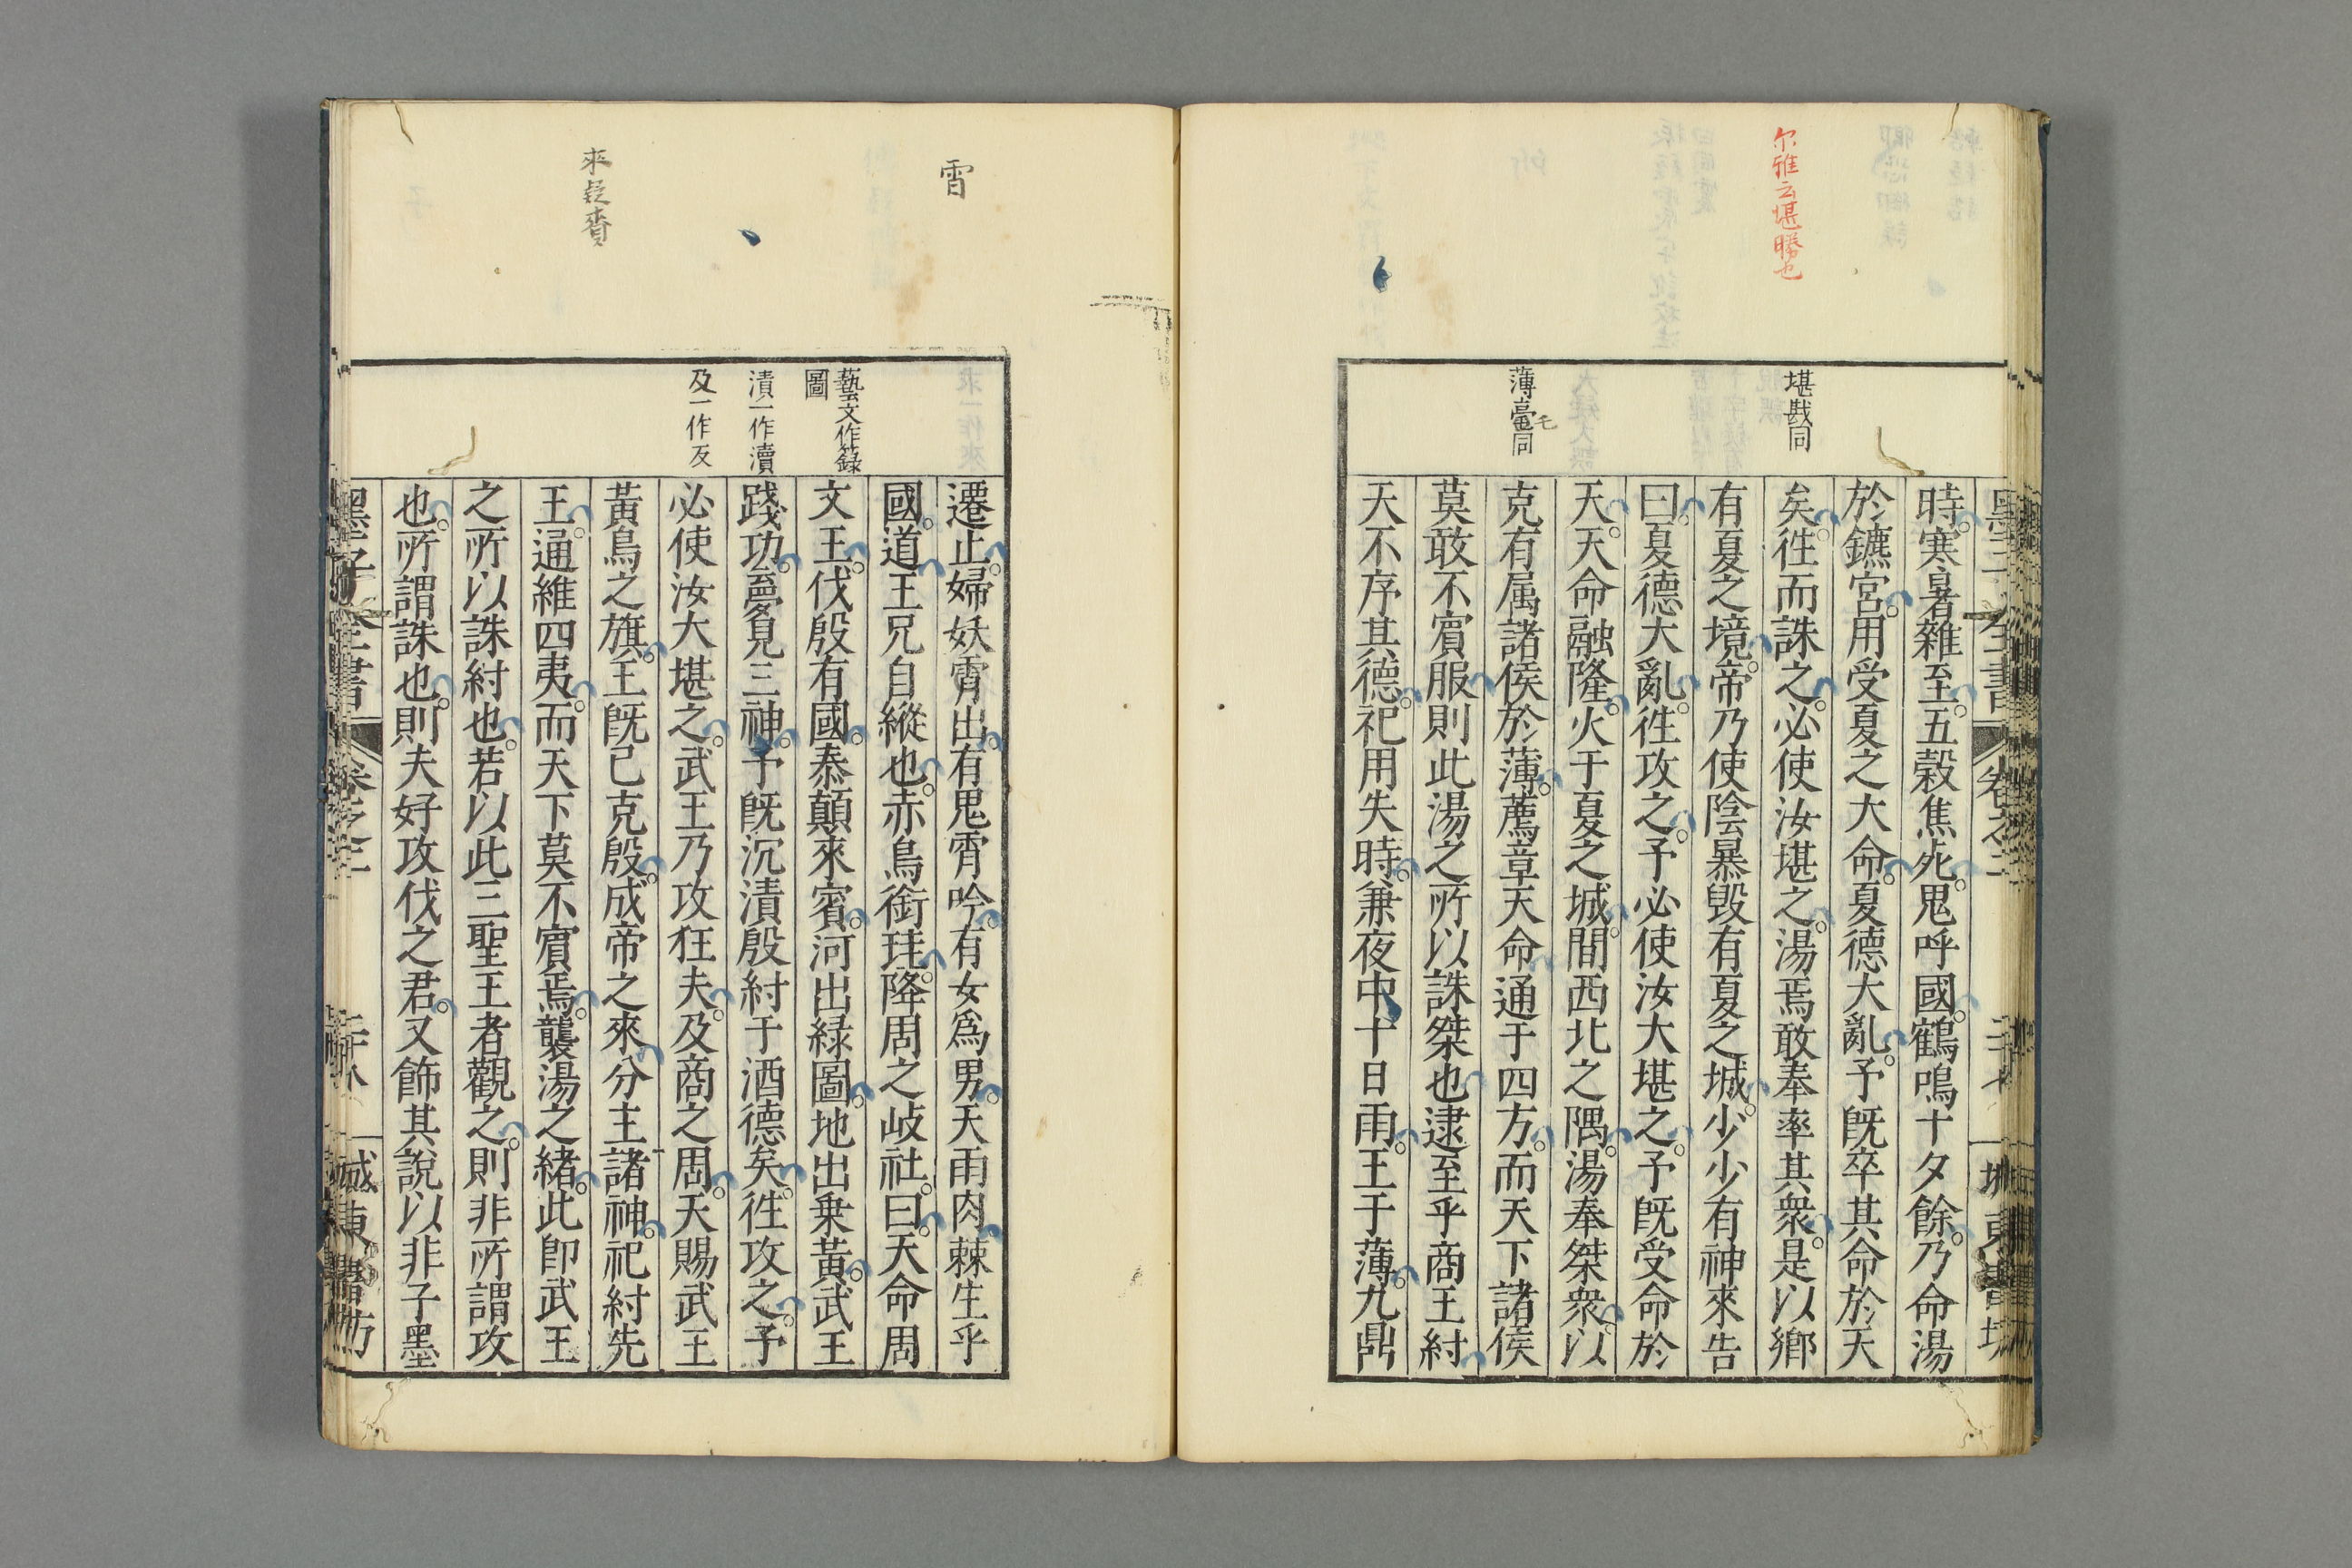 尓雅云堪勝也
堪戡同
薄亳同
時寒暑雜至五穀焦死鬼呼國鶴鳴十夕餘乃命湯
於鑣宮用受夏之大命夏德大亂予既卒其命於天
矣徃而誅之必使汝堪之湯焉敢奉率其衆是以鄉
有夏之境帝乃使陰暴毀有夏之城少少有神來告
曰夏德大亂徃攻之予必使汝大堪之予既受命於
天天命融隆火于夏之城間西北之隅湯奉桀衆以
克有属諸侯於薄薦章天命通于四方而天下諸侯
莫敢不賓服則此湯之所以誅桀也逮至乎商王紂
天不序其德祀用失時兼夜中十日雨土于薄九鼎
雷
來疑賚
藝文作籙
圖
漬一作瀆
及一作反
遷止婦妖霄出有鬼宵吟有女爲男天雨肉棘生乎
國道王兄自縱也赤鳥銜珪降周之岐社曰天命周
文王伐殷有國泰顛來賓河出緑圖地出乗黃武王
踐功夢見三神予既沉漬殷紂于酒德矣徃攻之予
必使汝大堪之武王乃攻狂夫及商之周天賜武王
黃鳥之旗王既已克殷成帝之來分主諸神祀紂先
王通維四夷而天下莫不賓焉襲湯之緒此卽武王
之所以誅紂也若以此三聖王者觀之則非所謂攻
也所謂誅也則夫好攻伐之君又飾其說以非子墨